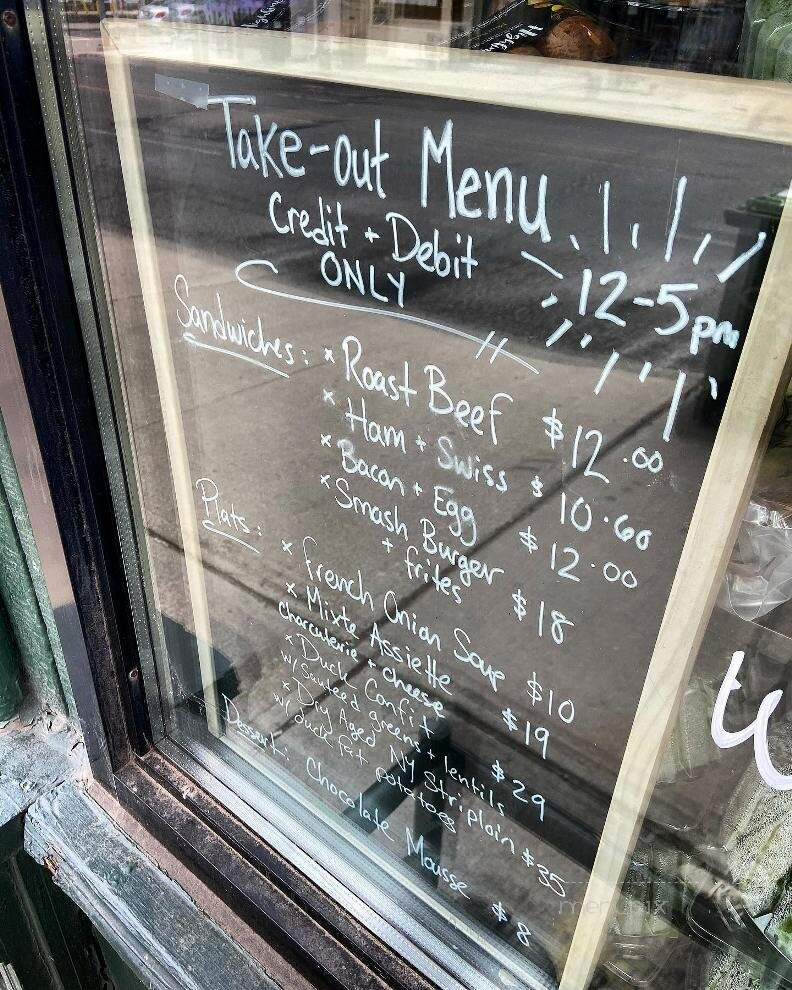 Take-out Menu
Credit + Debit
ONLY
12-5pm
Sandwiches: × Roast Beef $12.00
× Ham + Swiss $10.60
× Bacon + Egg $12.00
× Smash Burger
+ frites $18
Plats: × french Onion Soup $10
× Mixte Assiette
charcuterie + cheese $19
× Duck Confit
w/ Sauteed greens + lentils $29
× Dry Aged NY Striploin $35
w/ duck fat potatoes
Dessert: Chocolate Mousse $8